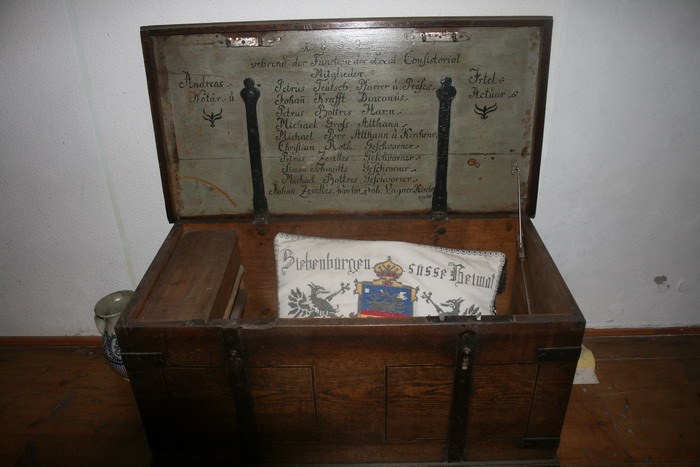 vehrend der Function der Local Consistorial
Mitglieder
Andreas
Notar u
Istel
Actuar
Petrus Teutsch Pfarrer u. Profes.
Johañ Krafft Diaconus
Petrus Boltres Hann
Michael Gross Althann
Michael Althann u Kirchenv.
Christian Roth Geschworner
Petrus Zerelles Geschworner
Simon Schmidts Geschworner
Michael Boltres Geschworner
Johañ Zerelles, Joh. Vagner
Siebenbürgen süsse Heimat